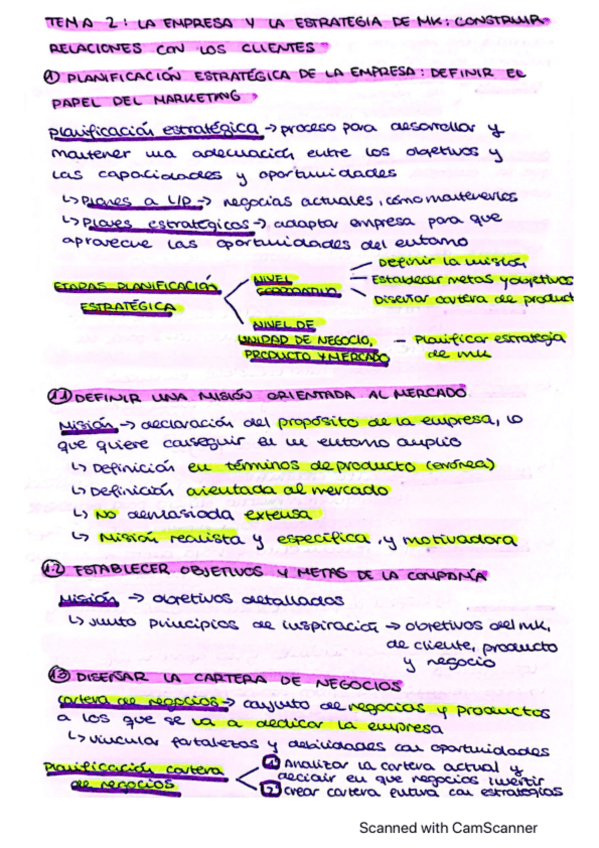 TEMA 2: LA EMPRESA Y LA ESTRATEGIA DE MK: CONSTRUIR
RELACIONES CON LOS CLIENTES
① PLANIFICACIÓN ESTRATÉGICA DE LA EMPRESA: DEFINIR EL
PAPEL DEL MARKETING
Planificación estratégica → proceso para desarrollar y
mantener una adecuación entre los objetivos y
las capacidades y oportunidades
↳ Planes a L/P → negocios actuales, cómo mantenerlos
↳ Planes estratégicos → adaptar empresa para que
aproveche las oportunidades del entorno
ETAPAS PLANIFICACIÓN
ESTRATÉGICA
NIVEL
CORPORATIVO
Definir la misión
Establecer metas y objetivos
Diseñar cartera de product
NIVEL DE
UNIDAD DE NEGOCIO,
PRODUCTO Y MERCADO
– Planificar estrategia
de mk
1.1 DEFINIR UNA MISIÓN ORIENTADA AL MERCADO
Misión → declaración del propósito de la empresa, lo
que quiere conseguir en un entorno amplio
↳ Definición en términos de producto (errónea)
↳ Definición orientada al mercado
↳ No demasiado extensa
↳ Misión realista y específica, y motivadora
1.2 ESTABLECER OBJETIVOS Y METAS DE LA COMPAÑÍA
Misión → objetivos detallados
↳ Junto principios de inspiración → objetivos del mk,
de cliente, producto
y negocio
1.3 DISEÑAR LA CARTERA DE NEGOCIOS
Cartera de negocios → conjunto de negocios y productos
a los que se va a dedicar la empresa
↳ vincular fortalezas y debilidades con oportunidades
Planificación cartera
de negocios
1 Analizar la cartera actual y
decidir en que negocios invertir
2 Crear cartera futura con estrategias
Scanned with CamScanner